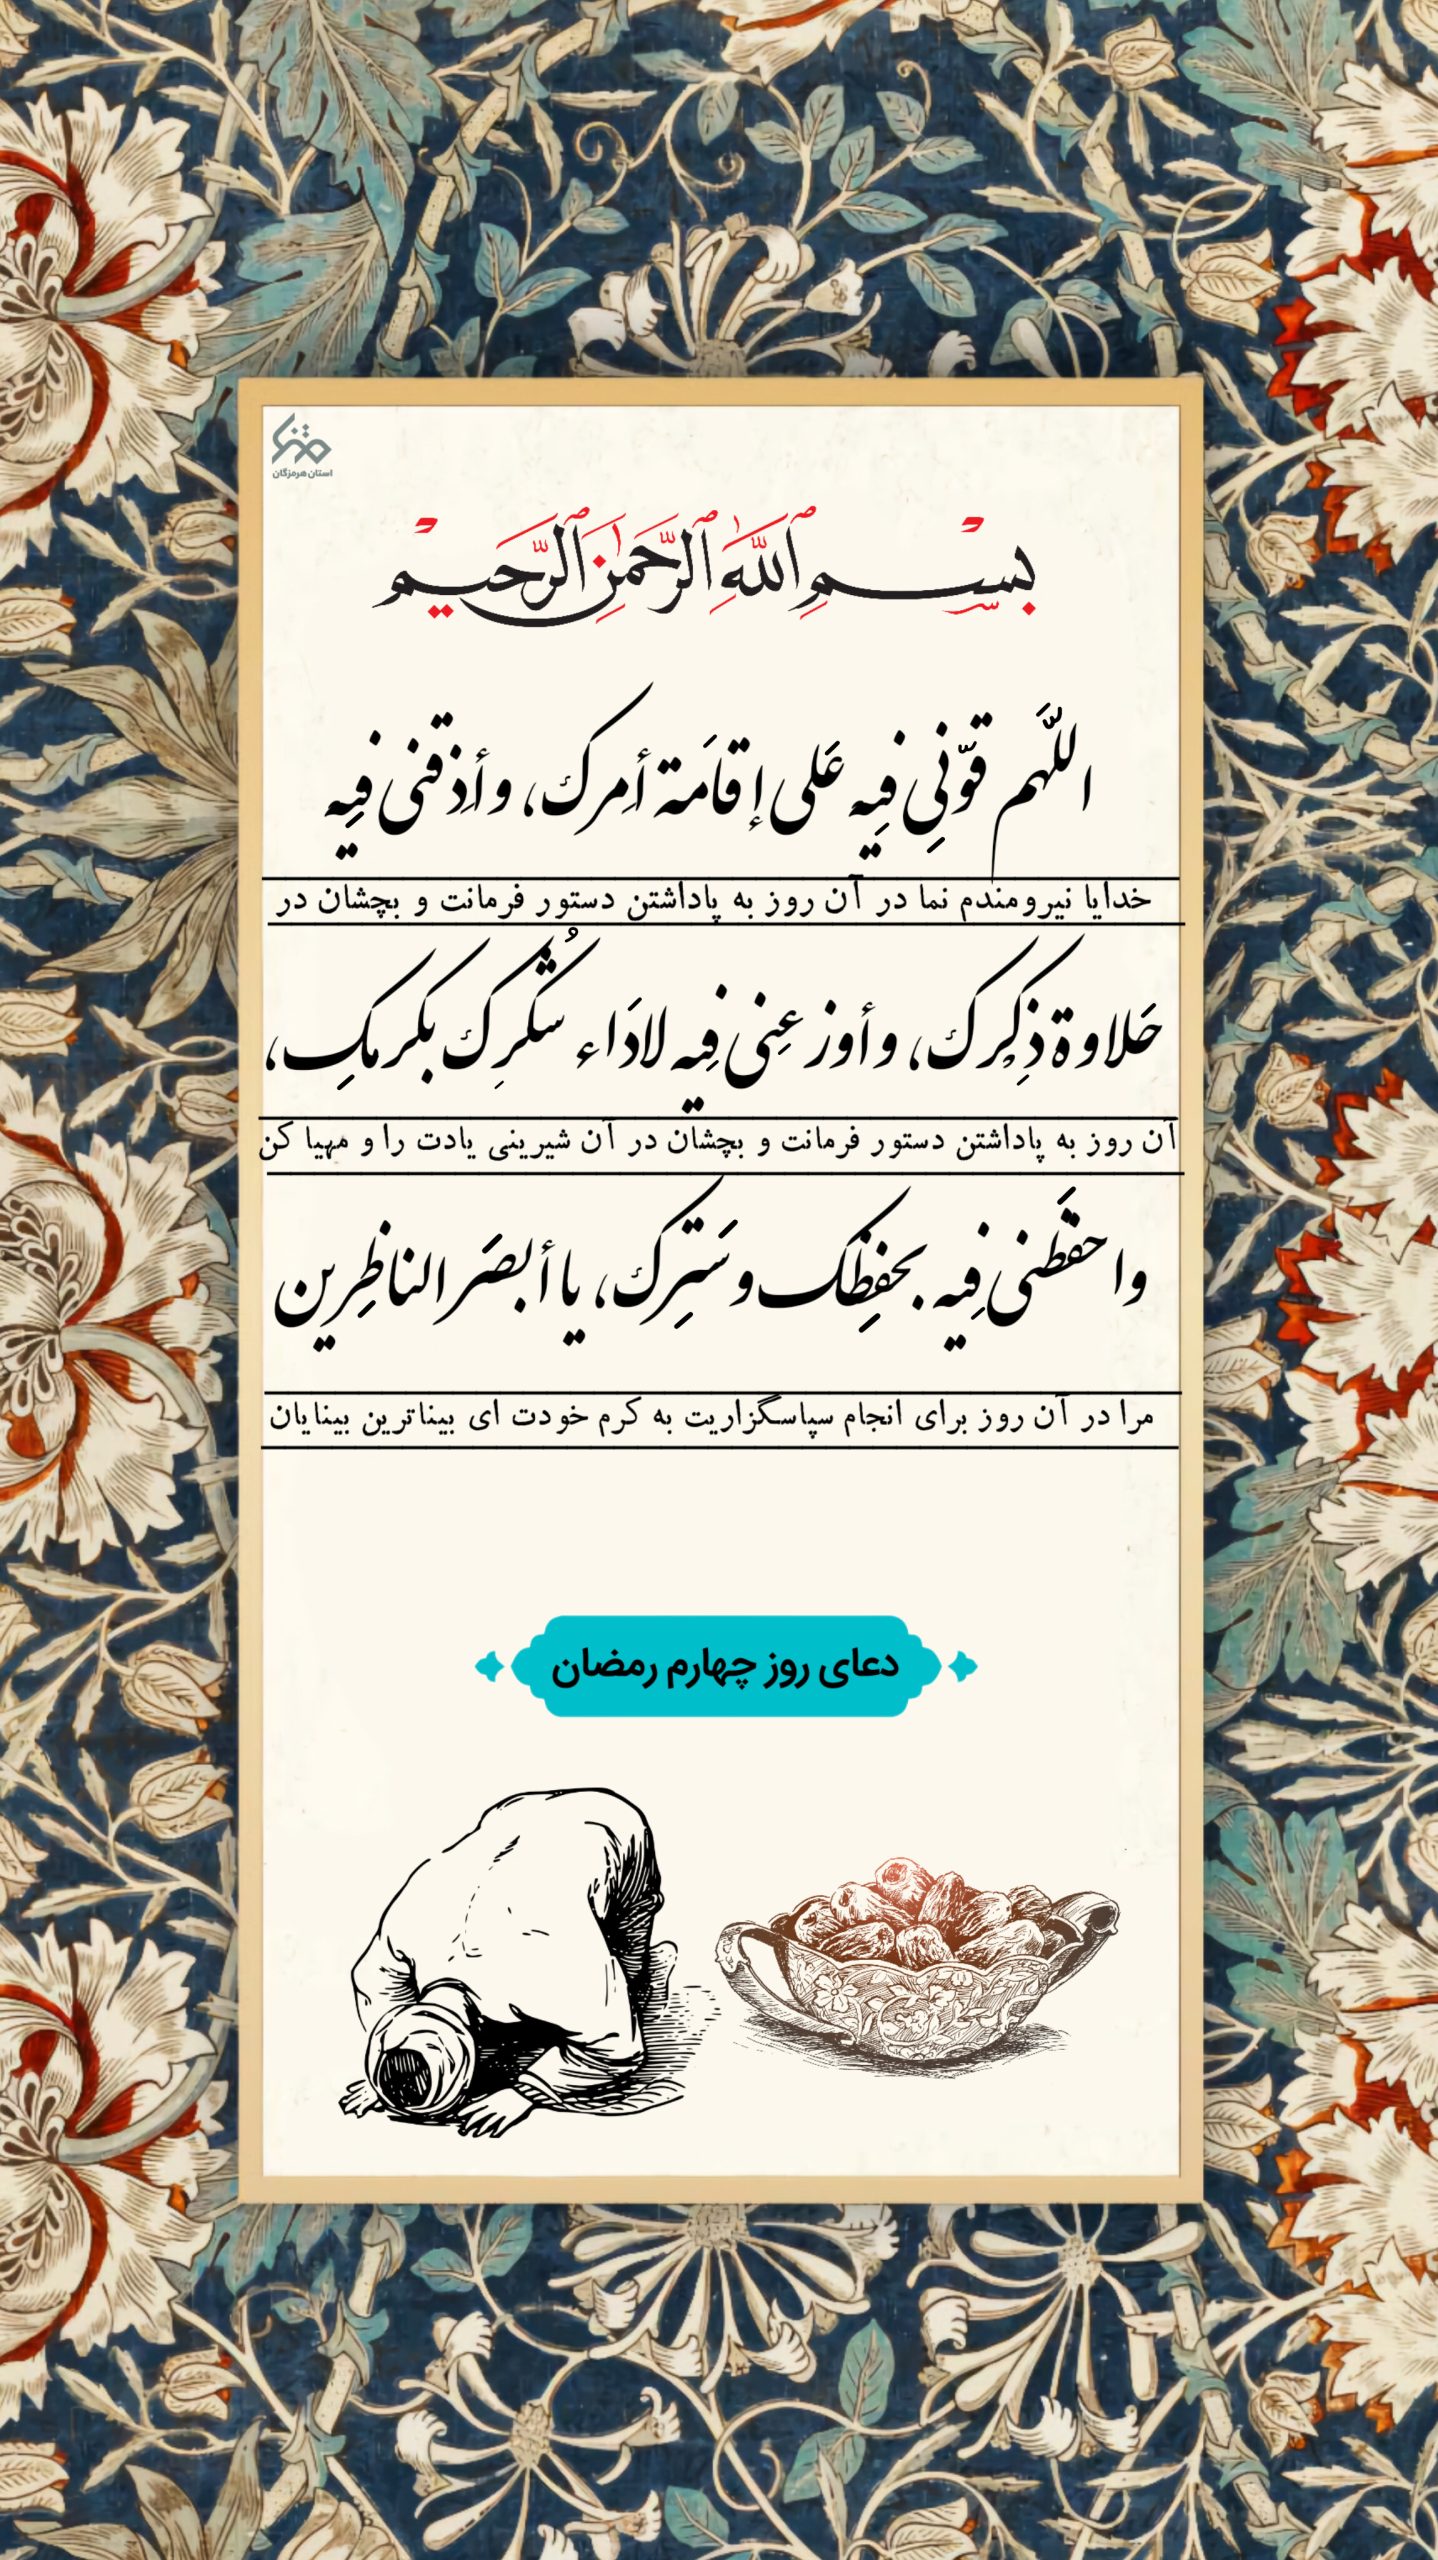 استان هرمزگان
بِسْمِ ٱللَّهِ ٱلرَّحْمَٰنِ ٱلرَّحِيمِ
اللَّهم قوّنِي فِيه عَلى إقامَة أمِرك، وأذِقنى فِيه
خدایا نیرومندم نما در آن روز به پاداشتن دستور فرمانت و بچشان در
حَلاوة ذِكِرك، وأوزعِنى فِيه لادَاء شُكرِك بكرمكِ،
آن روز به پاداشتن دستور فرمانت و بچشان در آن شیرینی یادت را و مهیا کن
واحفَظنى فِيه بحفِظِك وسَتِرك، يا أبصَر الناظِرين
مرا در آن روز برای انجام سپاسگزاریت به کرم خودت ای بیناترین بینایان
دعای روز چهارم رمضان